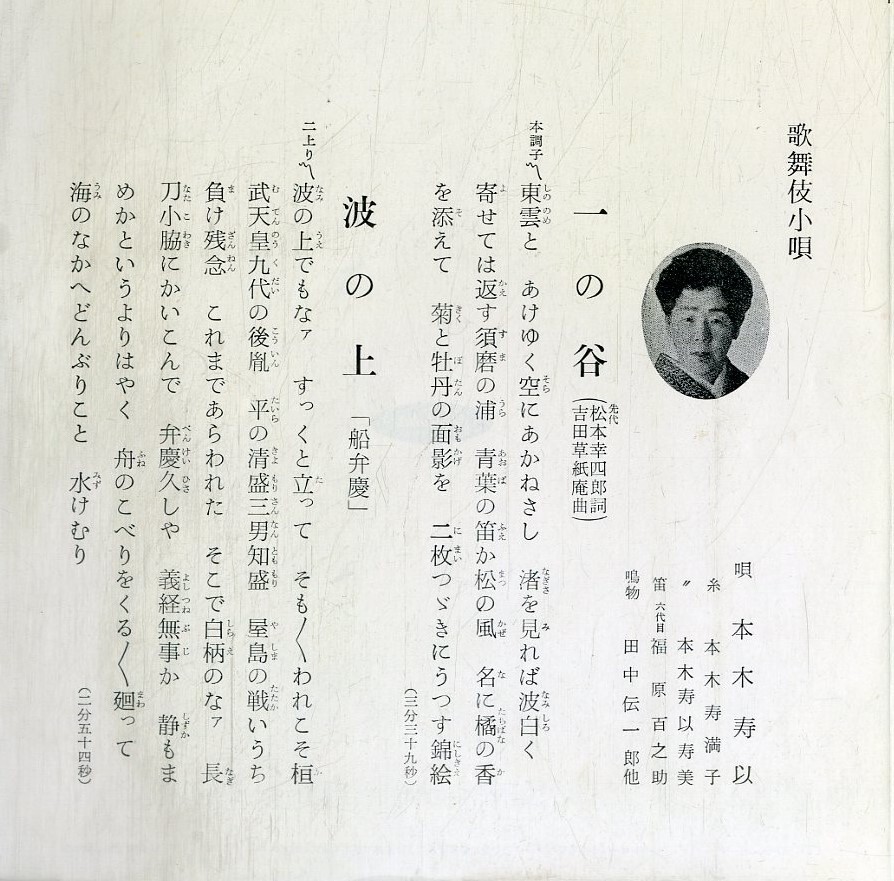 歌舞伎小唄
唄 本木寿以
糸 本木寿満子
〃 本木寿以寿美
笛 六代目 福原百之助
鳴物 田中伝一郎他
一の谷(先代 松本幸四郎詞
吉田草紙庵曲)
本調子 〽東雲と あけゆく空にあかねさし 渚を見れば波白く
寄せては返す須磨の浦 青葉の笛か松の風 名に橘の香
を添えて 菊と牡丹の面影を 二枚つゞきにうつす錦絵
(三分三十九秒)
波の上 「船弁慶」
二上り 〽波の上でもなァ すっくと立って そも〳〵われこそ桓
武天皇九代の後胤 平の清盛三男知盛 屋島の戦いうち
負け残念 これまであらわれた そこで白柄のなァ 長
刀小脇にかいこんで 弁慶久しや 義経無事か 静もま
めかというよりはやく 舟のこべりをくる〳〵廻って
海のなかへどんぶりこと 水けむり
(二分五十四秒)